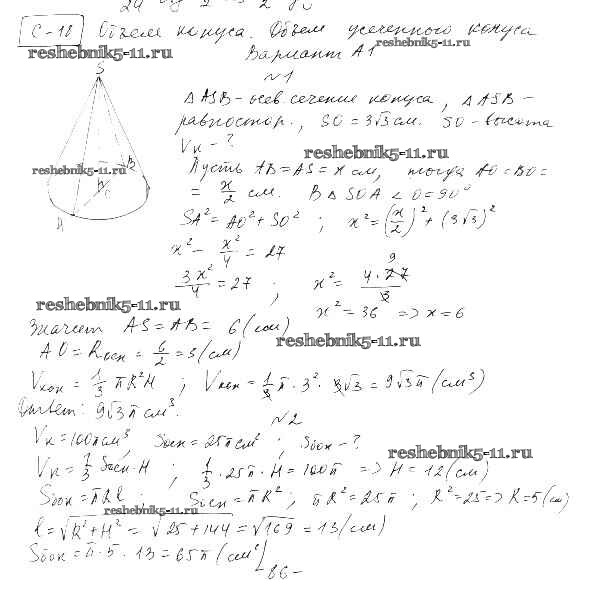 С-18 Объем конуса. Объем усеченного конуса
reshebnik5-11.ru
Вариант А1
reshebnik5-11.ru
S
№1
△ASB - осев. сечение конуса, △ASB -
равностор., SO = 3√3 см. SO - высота
Vк - ?
reshebnik5-11.ru
reshebnik5-11.ru
B
O
A
Пусть AB = AS = x см, тогда AO = BO =
= x/2 см. В △SOA ∠O = 90°
SA² = AO² + SO² ; x² = (x/2)² + (3√3)²
x² - x²/4 = 27
3x²/4 = 27 ; x² = 4·27/3 9
x² = 36 => x = 6
reshebnik5-11.ru
Значит AS = AB = 6 (см)
reshebnik5-11.ru
AO = Rосн = 6/2 = 3 (см)
Vкон = 1/3 πR²H ; Vкон = 1/3 π · 3² · 3√3 = 9√3π (см³)
Ответ: 9√3π см³.
№2
Vк = 100π см³, Sосн = 25π см² ; Sбок - ?
reshebnik5-11.ru
Vк = 1/3 Sосн · H ; 1/3 · 25π · H = 100π => H = 12 (см)
Sбок = πRl ; Sосн = πR² ; πR² = 25π ; R² = 25 => R = 5 (см)
reshebnik5-11.ru
l = √R² + H² = √25 + 144 = √169 = 13 (см)
Sбок = π · 5 · 13 = 65π (см²)
- 86 -